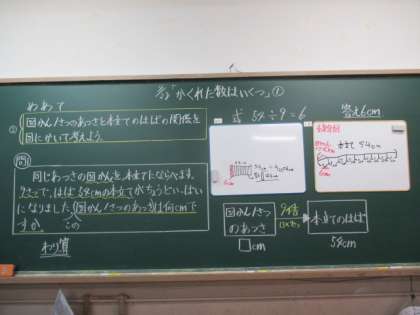 「かくれた数はいくつ」①
めあて
図かん1さつのあつさと本立てのはばの関係を
図にかいて考えよう。
問
同じあつさの図かんを、本立てにならべます。
9さつで、はば54cmの本立てがちょうどいっぱい
になりました。図かん1さつのあつさは何cmで
すか。
この
わり算
式 54÷9=6
答え6cm
本立て 54cm
図かん1さつ
のあつさ
□cm
9倍
本立てのはば
54cm